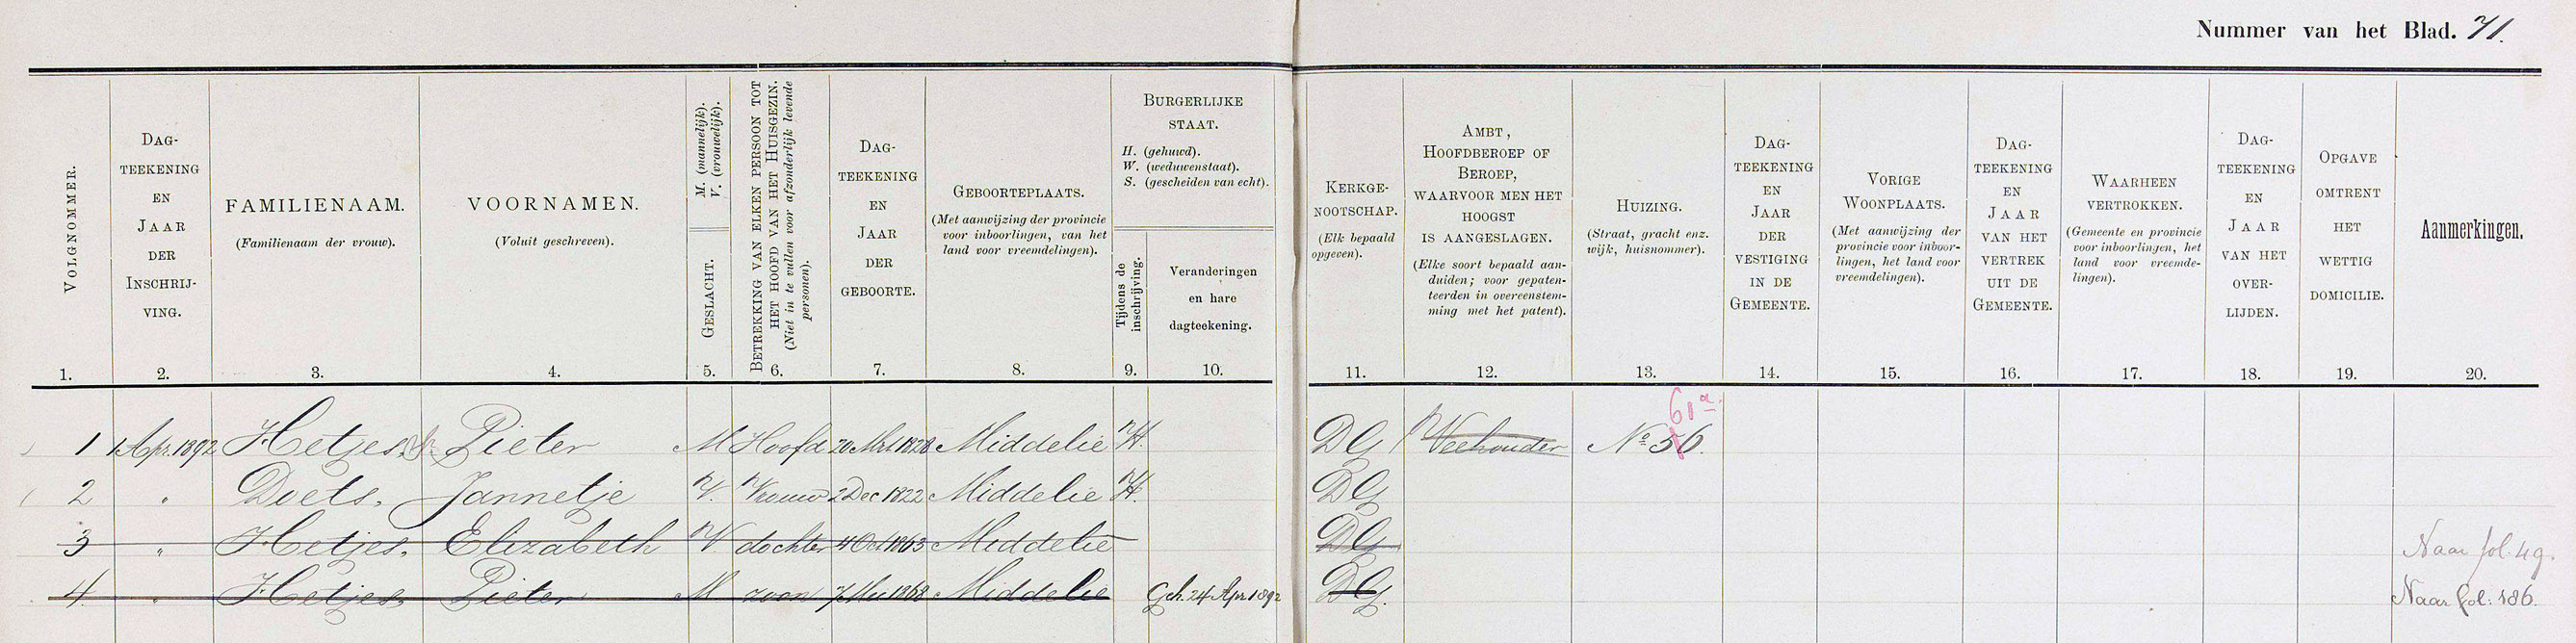 Nummer van het Blad. 71.
VOLGNOMMER.
DAG-
TEEKENING
EN
JAAR
DER
INSCHRIJ-
VING.
FAMILIENAAM.
(Familienaam der vrouw).
VOORNAMEN.
(Voluit geschreven).
M. (mannelijk).
V. (vrouwelijk).
GESLACHT.
BETREKKING VAN ELKEN PERSOON TOT
HET HOOFD VAN HET HUISGEZIN.
(Niet in te vullen voor afzonderlijk levende
personen).
DAG-
TEEKENING
EN
JAAR
DER
GEBOORTE.
GEBOORTEPLAATS.
(Met aanwijzing der provincie
voor inboorlingen, van het
land voor vreemdelingen).
BURGERLIJKE
STAAT.
H. (gehuwd).
W. (weduwenstaat).
S. (gescheiden van echt).
Tijdens de
inschrijving.
Veranderingen
en hare
dagteekening.
KERKGE-
NOOTSCHAP.
(Elk bepaald
opgeven).
AMBT,
HOOFDBEROEP OF
BEROEP,
WAARVOOR MEN HET
HOOGST
IS AANGESLAGEN.
(Elke soort bepaald aan-
duiden; voor gepaten-
teerden in overeenstem-
ming met het patent).
HUIZING.
(Straat, gracht enz.
wijk, huisnommer).
DAG-
TEEKENING
EN
JAAR
DER
VESTIGING
IN DE
GEMEENTE.
VORIGE
WOONPLAATS.
(Met aanwijzing der
provincie voor inboor-
lingen, het land voor
vreemdelingen).
DAG-
TEEKENING
EN
JAAR
VAN HET
VERTREK
UIT DE
GEMEENTE.
WAARHEEN
VERTROKKEN.
(Gemeente en provincie
voor inboorlingen, het
land voor vreemde-
lingen).
DAG-
TEEKENING
EN
JAAR
VAN HET
OVER-
LIJDEN.
OPGAVE
OMTRENT
HET
WETTIG
DOMICILIE.
Aanmerkingen.
1. 2. 3. 4. 5. 6. 7. 8. 9. 10. 11. 12. 13. 14. 15. 16. 17. 18. 19. 20.
61a.
1 1 Apr. 1892 Hetjes Pieter M Hoofd 20 Mrt 1828 Middelie H. DG Veehouder No 56.
2 " Doets. Jannetje V. Vrouw 2 Dec 1822 Middelie H. DG
3 " Hetjes. Elizabeth V dochter 4 Oct 1863 Middelie DG Naar fol. 49.
4 " Hetjes Pieter M zoon 7 Mei 1868 Middelie Geh. 24 Apr 1892 DG. Naar fol: 186.